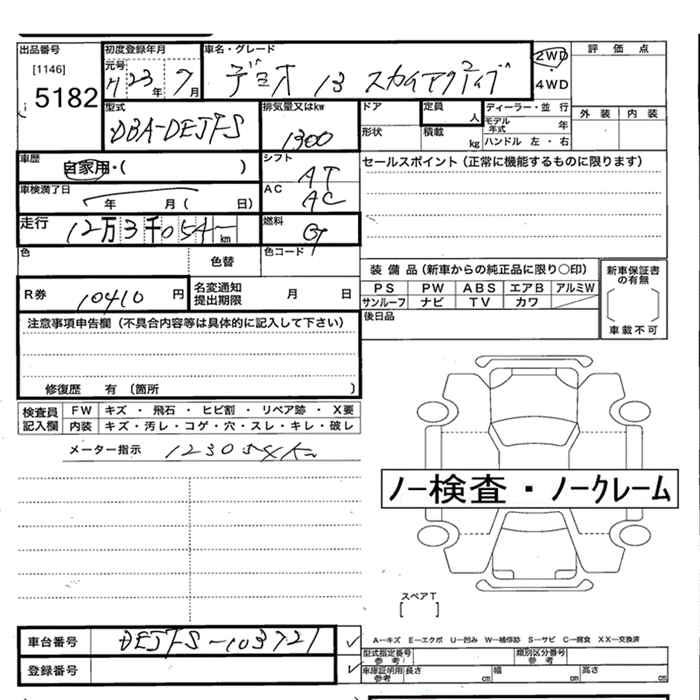 出品番号
[1146]
5182
初度登録年月
元号
H 23年 7月
車名・グレード
デミオ 13 スカイアクティブ
2WD
・
4WD
評価点
外装 内装
型式
DBA-DEJFS
排気量又はkw
1300
ドア
形状
定員 人
積載 kg
ディーラー・並行
モデル年式 年
ハンドル 左・右
車歴
自家用・( )
シフト
AT
セールスポイント (正常に機能するものに限ります)
車検満了日
年 月( 日)
AC
AC
走行
12万3千054 km
燃料
G
色 色替
色コード
R券
10410 円
名変通知
提出期限 月 日
装備品 (新車からの純正品に限り○印)
PS PW ABS エアB アルミW
サンルーフ ナビ TV カワ
後日品
新車保証書
の有無
車載不可
注意事項申告欄 (不具合内容等は具体的に記入して下さい)
修復歴 有 (箇所 )
検査員
記入欄
FW キズ ・ 飛石 ・ ヒビ割 ・ リペア跡 ・ X要
内装 キズ・汚レ・コゲ・穴・スレ・キレ・破レ
メーター指示 123054km
ノー検査・ノークレーム
スペアT
[ ]
車台番号 DEJFS-103721
登録番号
A−キズ E−エクボ U−凹み W−補修跡 S−サビ C−腐食 XX−交換済
型式指定番号
参考!
類別区分番号
参考
車庫証明用
参考
長さ cm 幅 cm 高さ cm